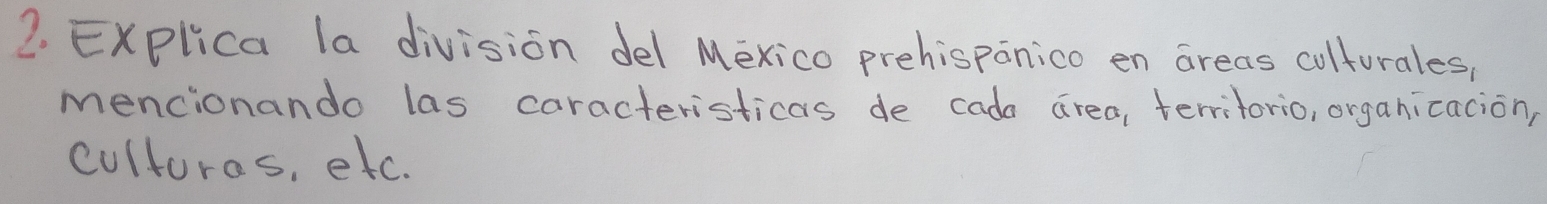 2. Explica la división del México prehispánico en áreas culturales,
mencionando las caracteristicas de cada área, territorio, organicación,
culturas, etc.